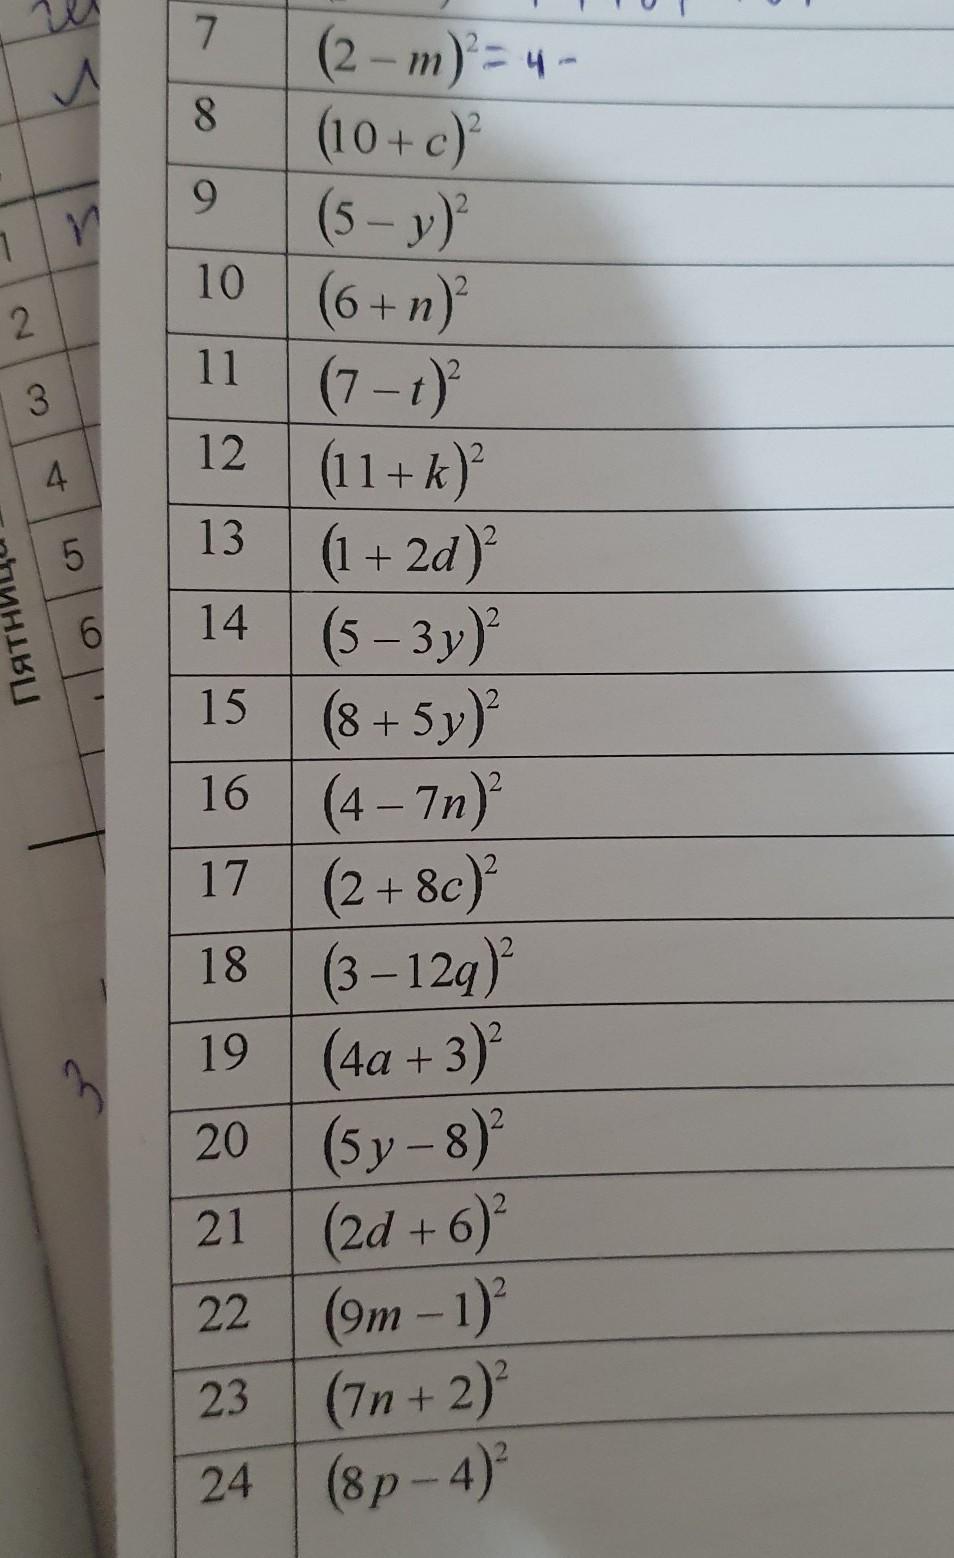 7 (2 – m)² = 4 -
8 (10 + c)²
9 (5 – y)²
10 (6 + n)²
11 (7 – t)²
12 (11 + k)²
13 (1 + 2d)²
14 (5 – 3y)²
15 (8 + 5y)²
16 (4 – 7n)²
17 (2 + 8c)²
18 (3 – 12q)²
19 (4a + 3)²
20 (5y – 8)²
21 (2d + 6)²
22 (9m – 1)²
23 (7n + 2)²
24 (8p – 4)²
Пятница
1
2
3
4
5
6